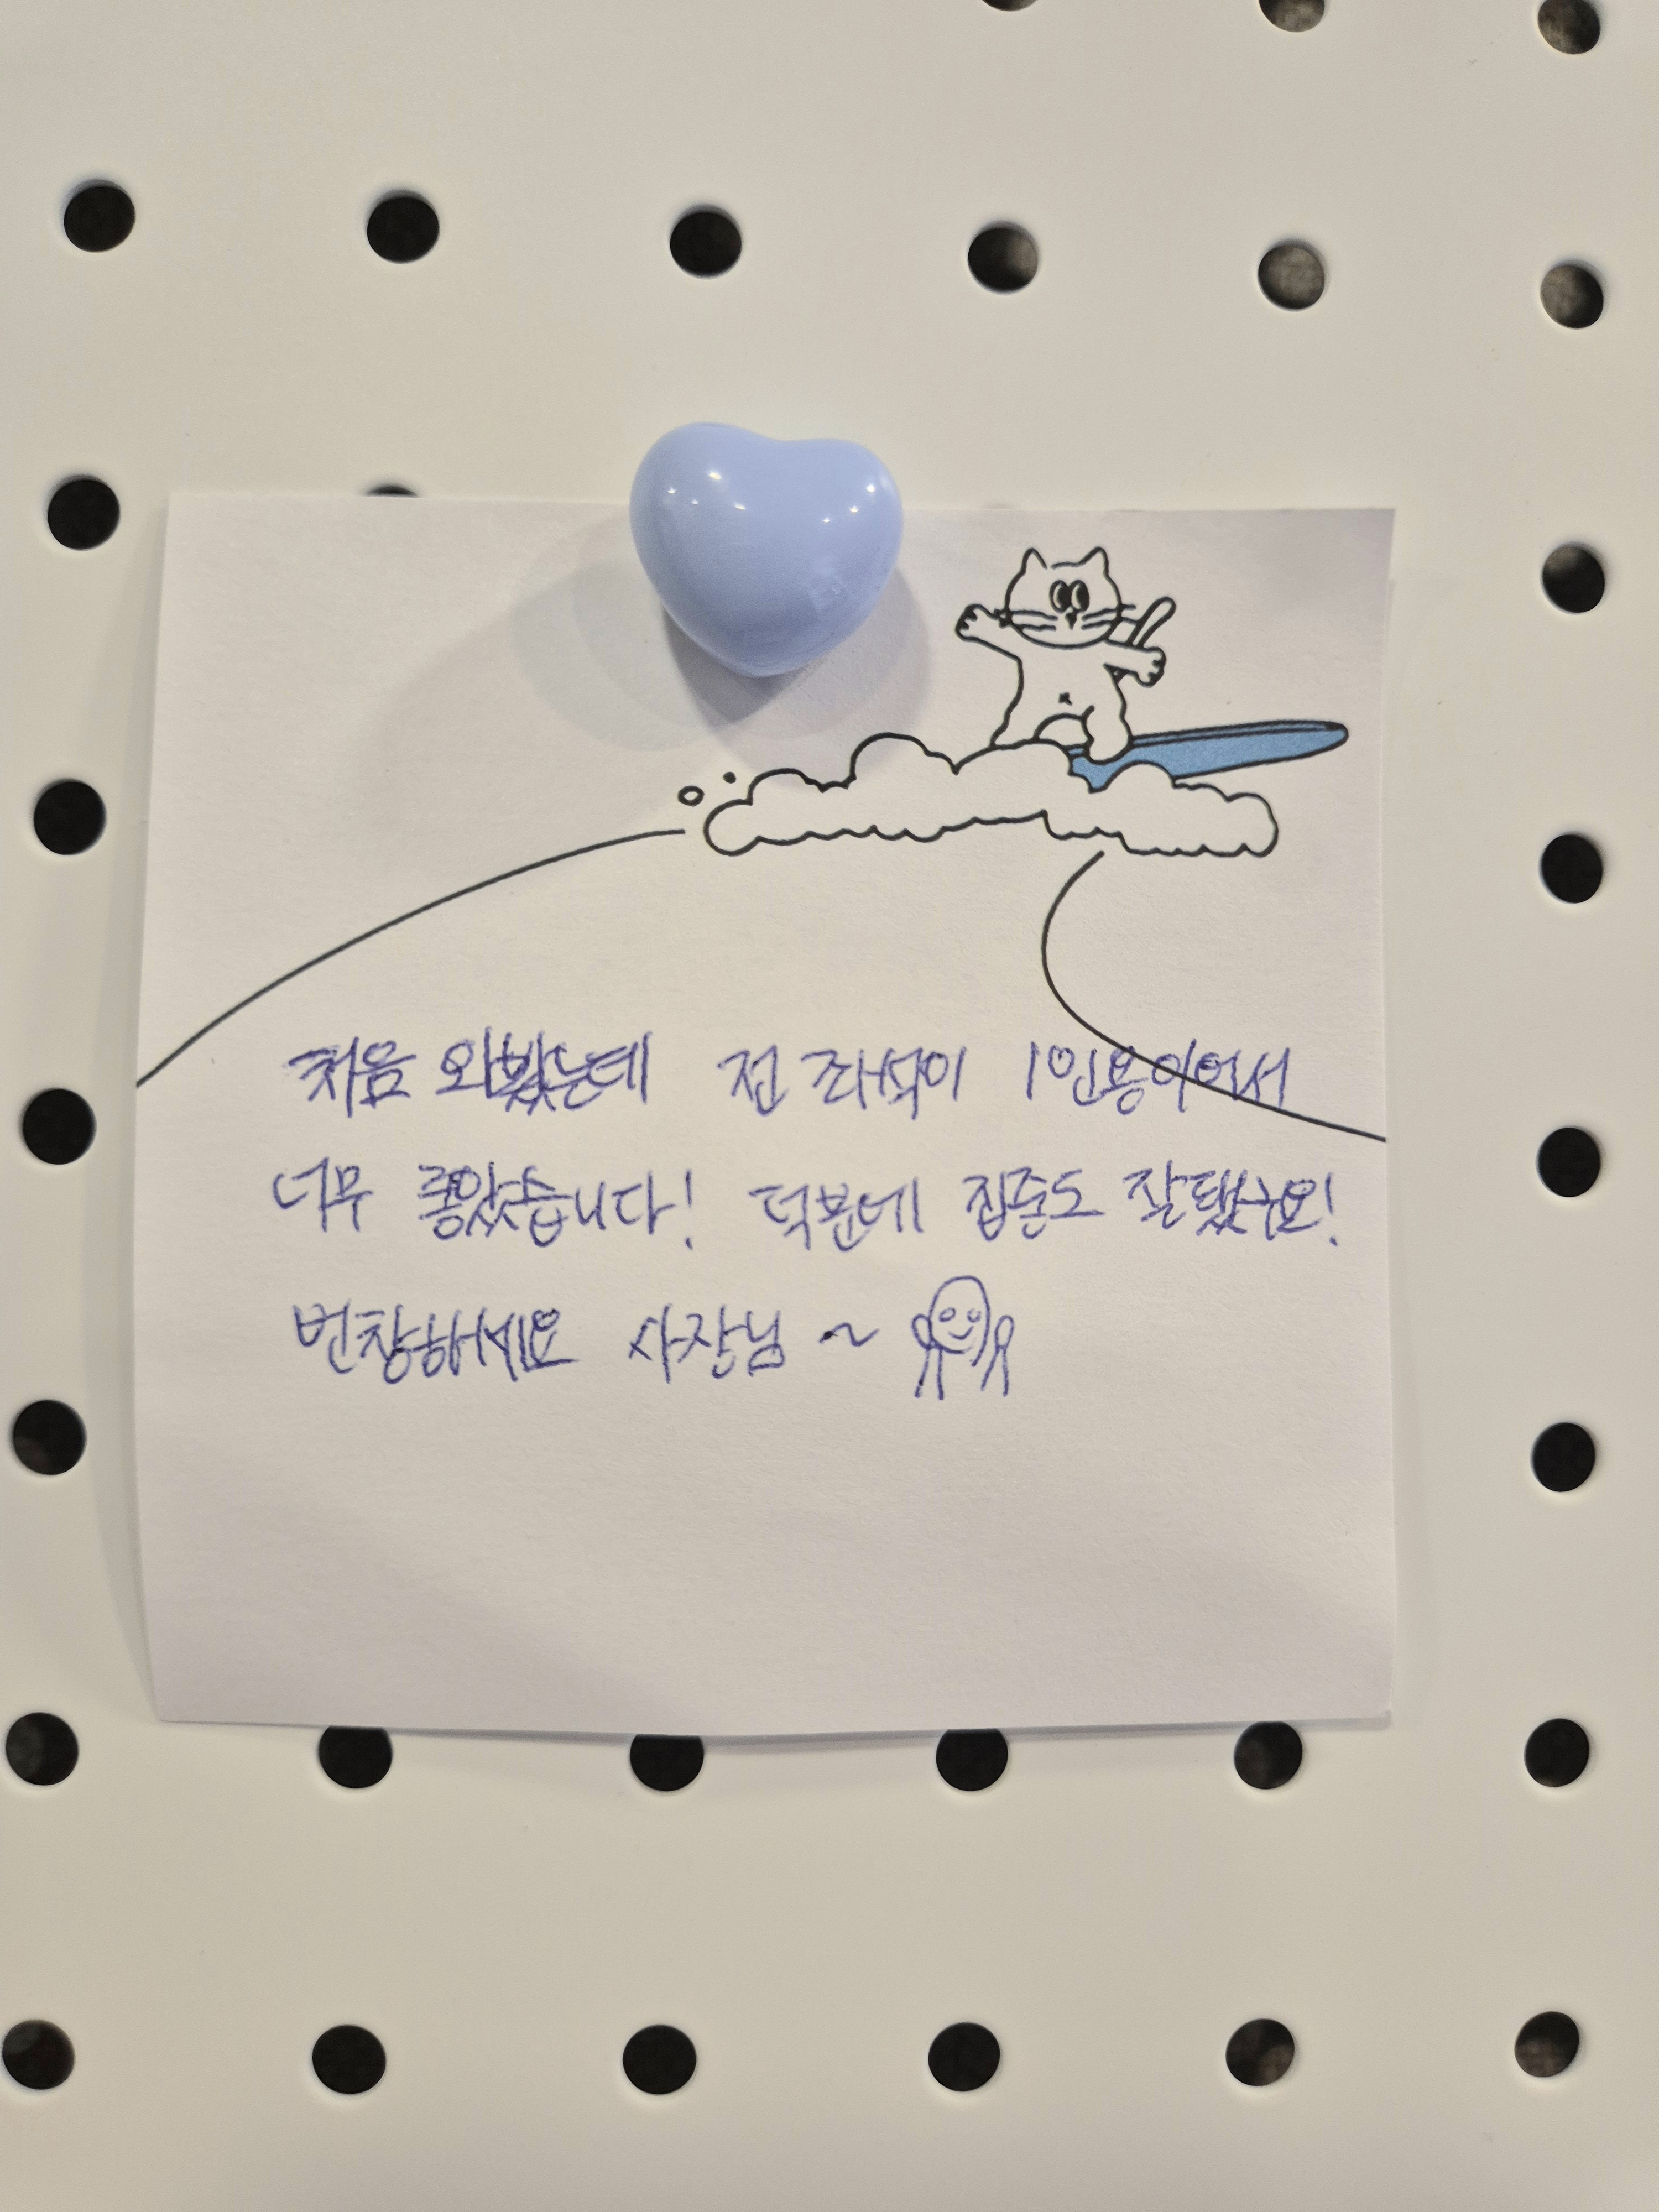 처음 와봤는데 전 좌석이 1인용이어서
너무 좋았습니다! 덕분에 집중도 잘됐구요!
번창하세요 사장님 ~